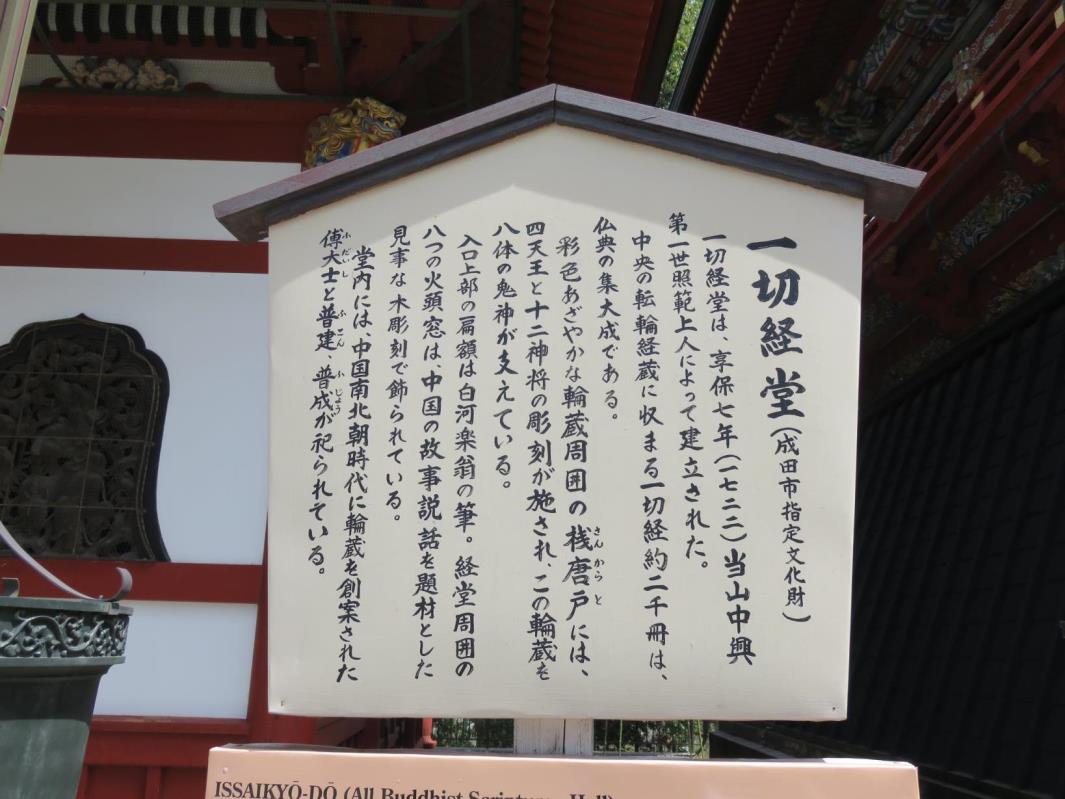 一切経堂(成田市指定文化財)
一切経堂は、享保七年(一七二二)当山中興
第一世照範上人によって建立された。
中央の転輪経蔵に収まる一切経約二千冊は、
仏典の集大成である。
彩色あざやかな輪蔵周囲の桟唐戸には、
さんからと
四天王と十二神将の彫刻が施され、この輪蔵を
八体の鬼神が支えている。
入口上部の扁額は白河楽翁の筆。経堂周囲の
八つの火頭窓は、中国の故事説話を題材とした
見事な木彫刻で飾られている。
堂内には、中国南北朝時代に輪蔵を創案された
傅大士と普建、普成が祀られている。
ふだいし ふこん ふじょう
ISSAIKYŌ-DŌ (All Buddhist Scriptures Hall)